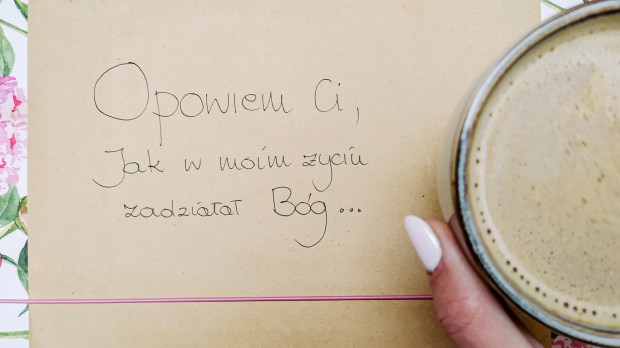 Opowiem Ci,
Jak w moim życiu
zadziałał Bóg...